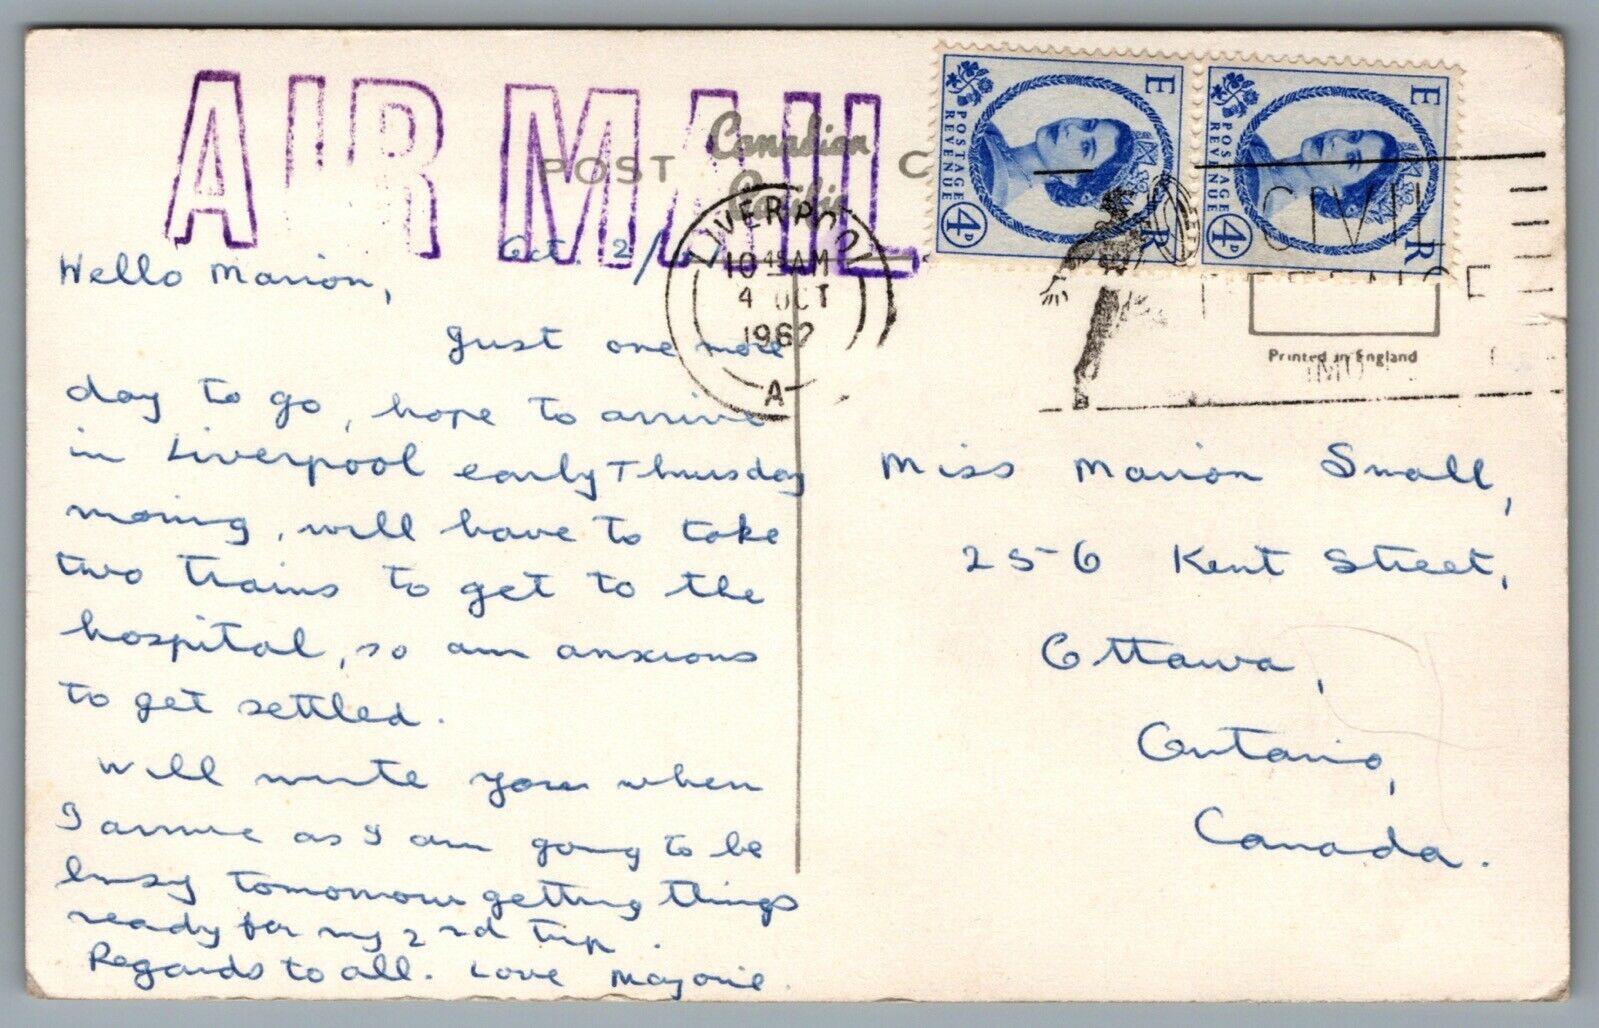 AIR MAIL
Canadian
Pacific
POST C
E R
POSTAGE
REVENUE
4D
E R
POSTAGE
REVENUE
4D
LIVERPOOL
10 45 AM
4 OCT
1962
A
CIVIL
DEFENCE
Printed in England
Oct. 2/
Hello Marion,
Just one more
day to go, hope to arrive
in Liverpool early Thursday
moring, will have to take
two trains to get to the
hospital, so am anxious
to get settled.
Will write you when
I arrive as I am going to be
busy tomorrow getting things
ready for my 2nd trip.
Regards to all. Love Marjorie.
Miss Marion Small,
25-6 Kent Street,
Ottawa,
Ontario,
Canada.